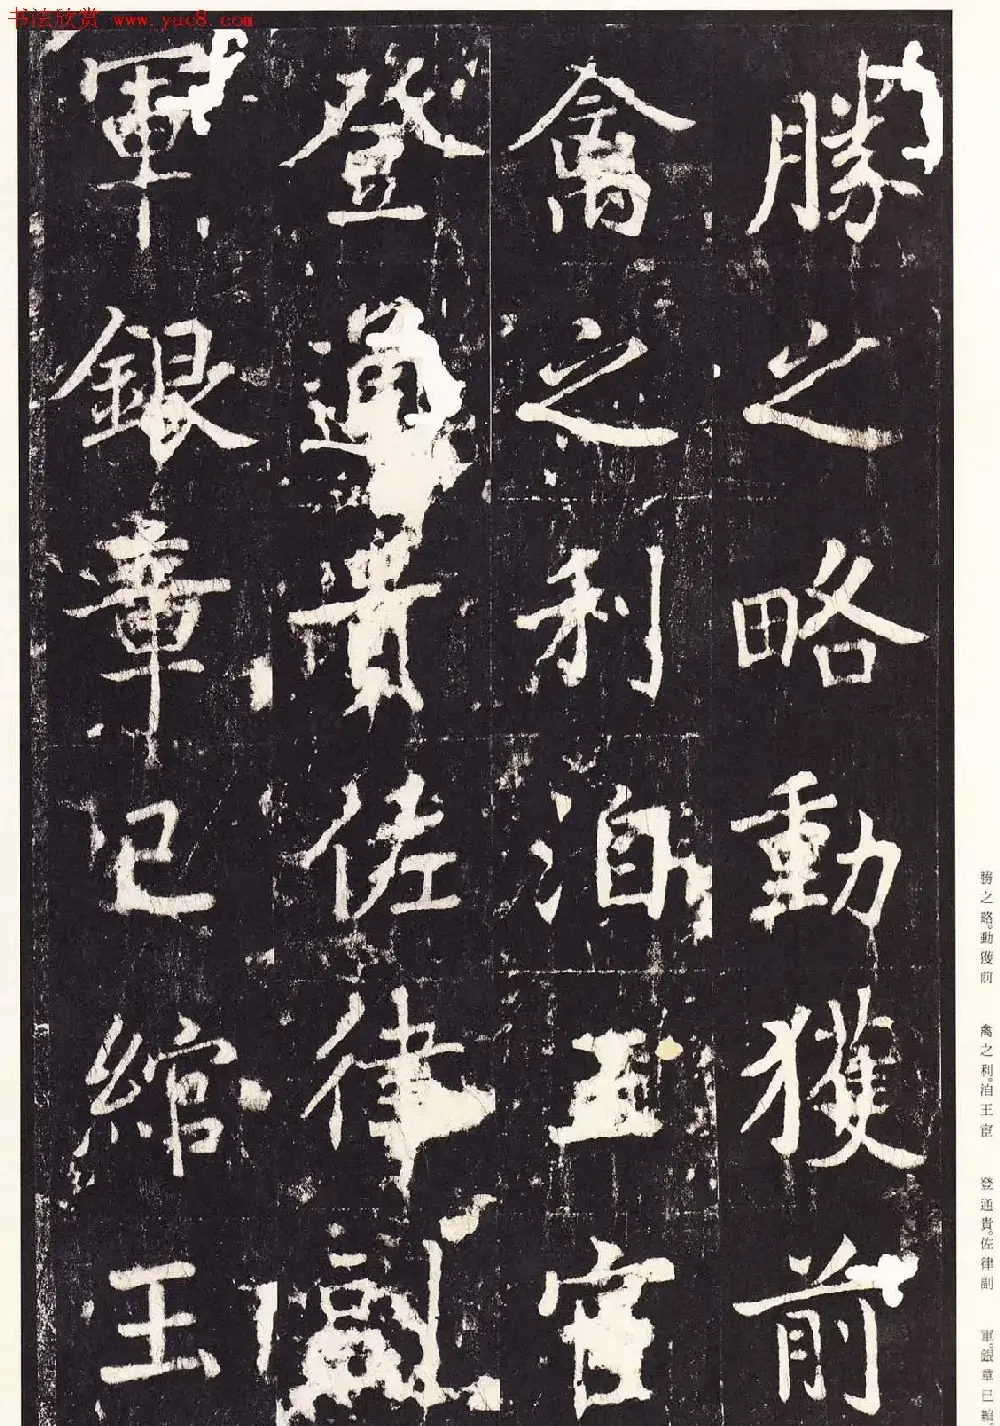 书法欣赏 www.yac8.com
勝之略動獲前
禽之利洎王宦
登通貴佐律副
軍銀章已綰王
勝之略。動獲前
禽之利。洎王宦
登通貴。佐律副
軍。銀章已綰